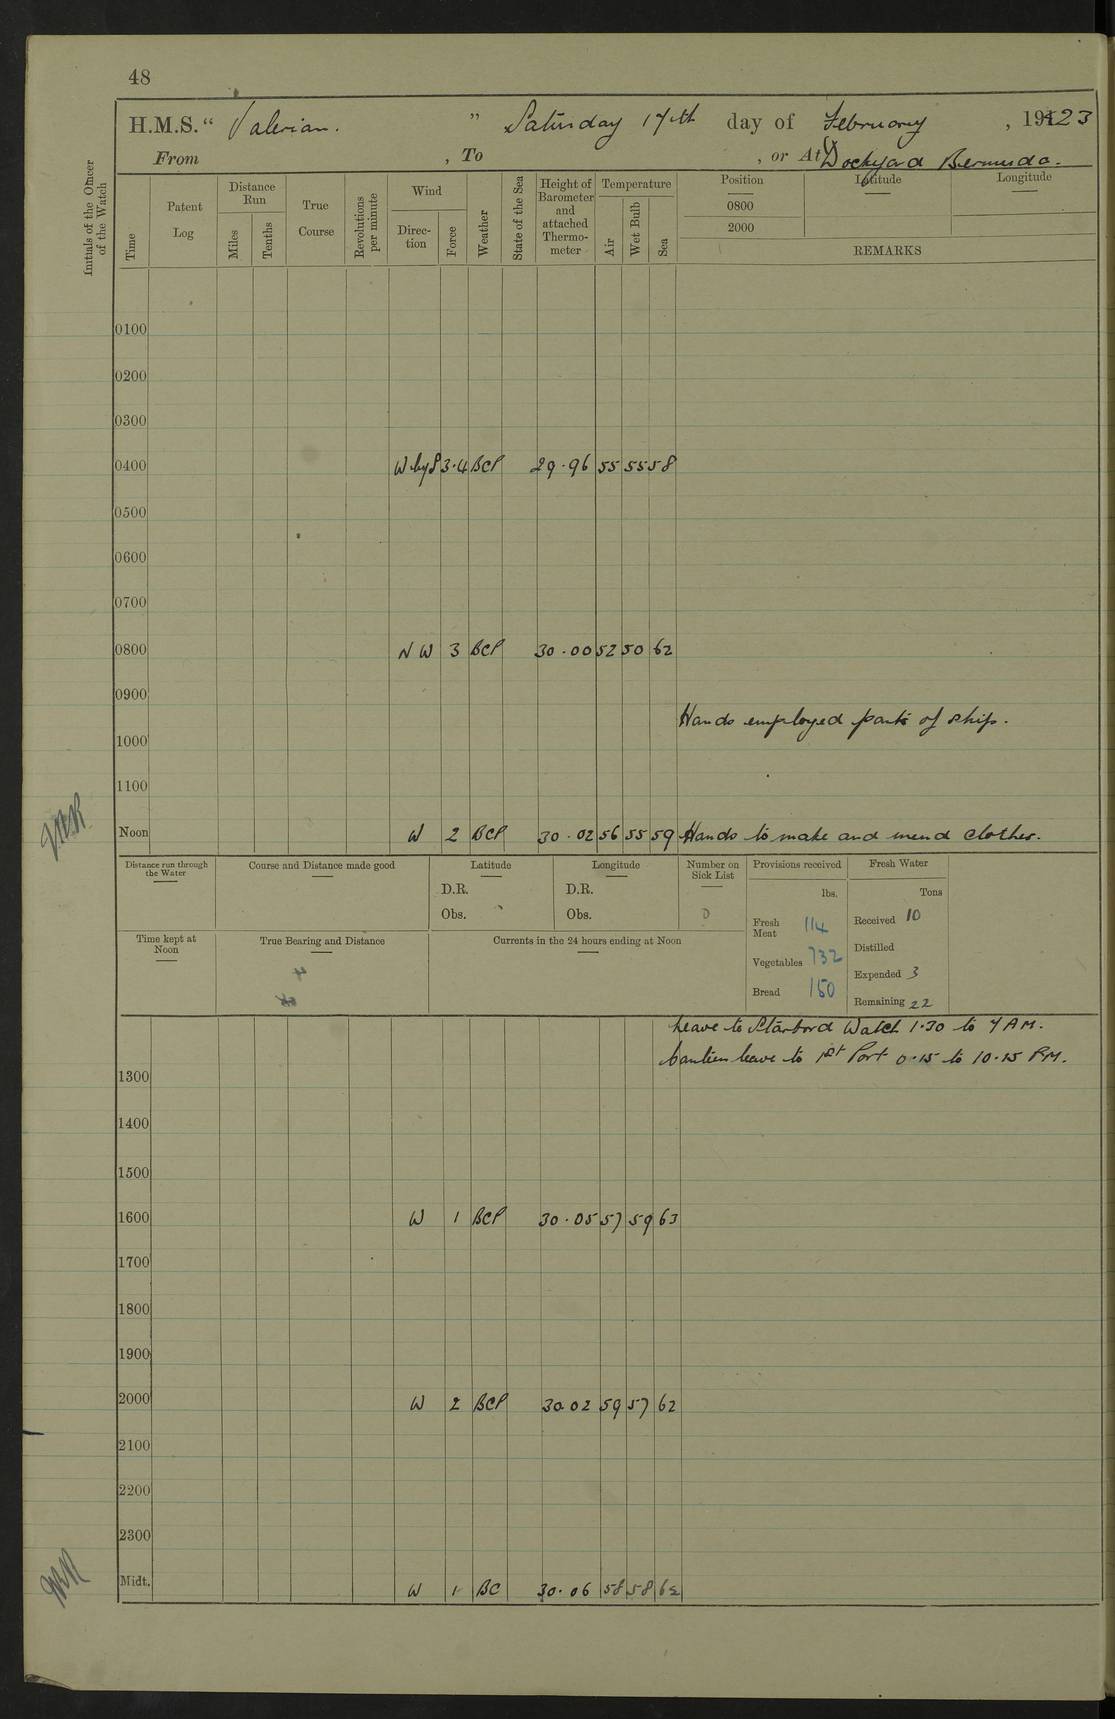 48
H.M.S. “ Valerian. ” Saturday 17th day of February , 1923
From , To , or At Dockyard Bermuda.
Initials of the Officer of the Watch
Time
Patent Log
Distance Run
Miles
Tenths
True Course
Revolutions per minute
Wind
Direc-tion
Force
Weather
State of the Sea
Height of Barometer and attached Thermo-meter
Temperature
Air
Wet Bulb
Sea
Position Latitude Longitude
0800
2000
REMARKS
0100
0200
0300
0400 W by S 3·4 BCP 29·96 55 55 58
0500
0600
0700
0800 NW 3 BCP 30·00 52 50 62
0900
Hands employed parts of ship.
1000
1100
Noon W 2 BCP 30·02 56 55 59 Hands to make and mend clothes.
Distance run through the Water
Course and Distance made good
Latitude
D.R.
Obs.
Longitude
D.R.
Obs.
Number on Sick List
0
Provisions received
lbs.
Fresh Meat 114
Vegetables 732
Bread 150
Fresh Water
Tons
Received 10
Distilled
Expended 3
Remaining 22
Time kept at Noon
True Bearing and Distance
Currents in the 24 hours ending at Noon
Leave to Starbord Watch 1·30 to 7 AM.
Canteen leave to 1st Port 0·15 to 10·15 PM.
1300
1400
1500
1600 W 1 BCP 30·05 57 59 63
1700
1800
1900
2000 W 2 BCP 30 02 59 57 62
2100
2200
2300
Midt. W 1 BC 30·06 58 58 62